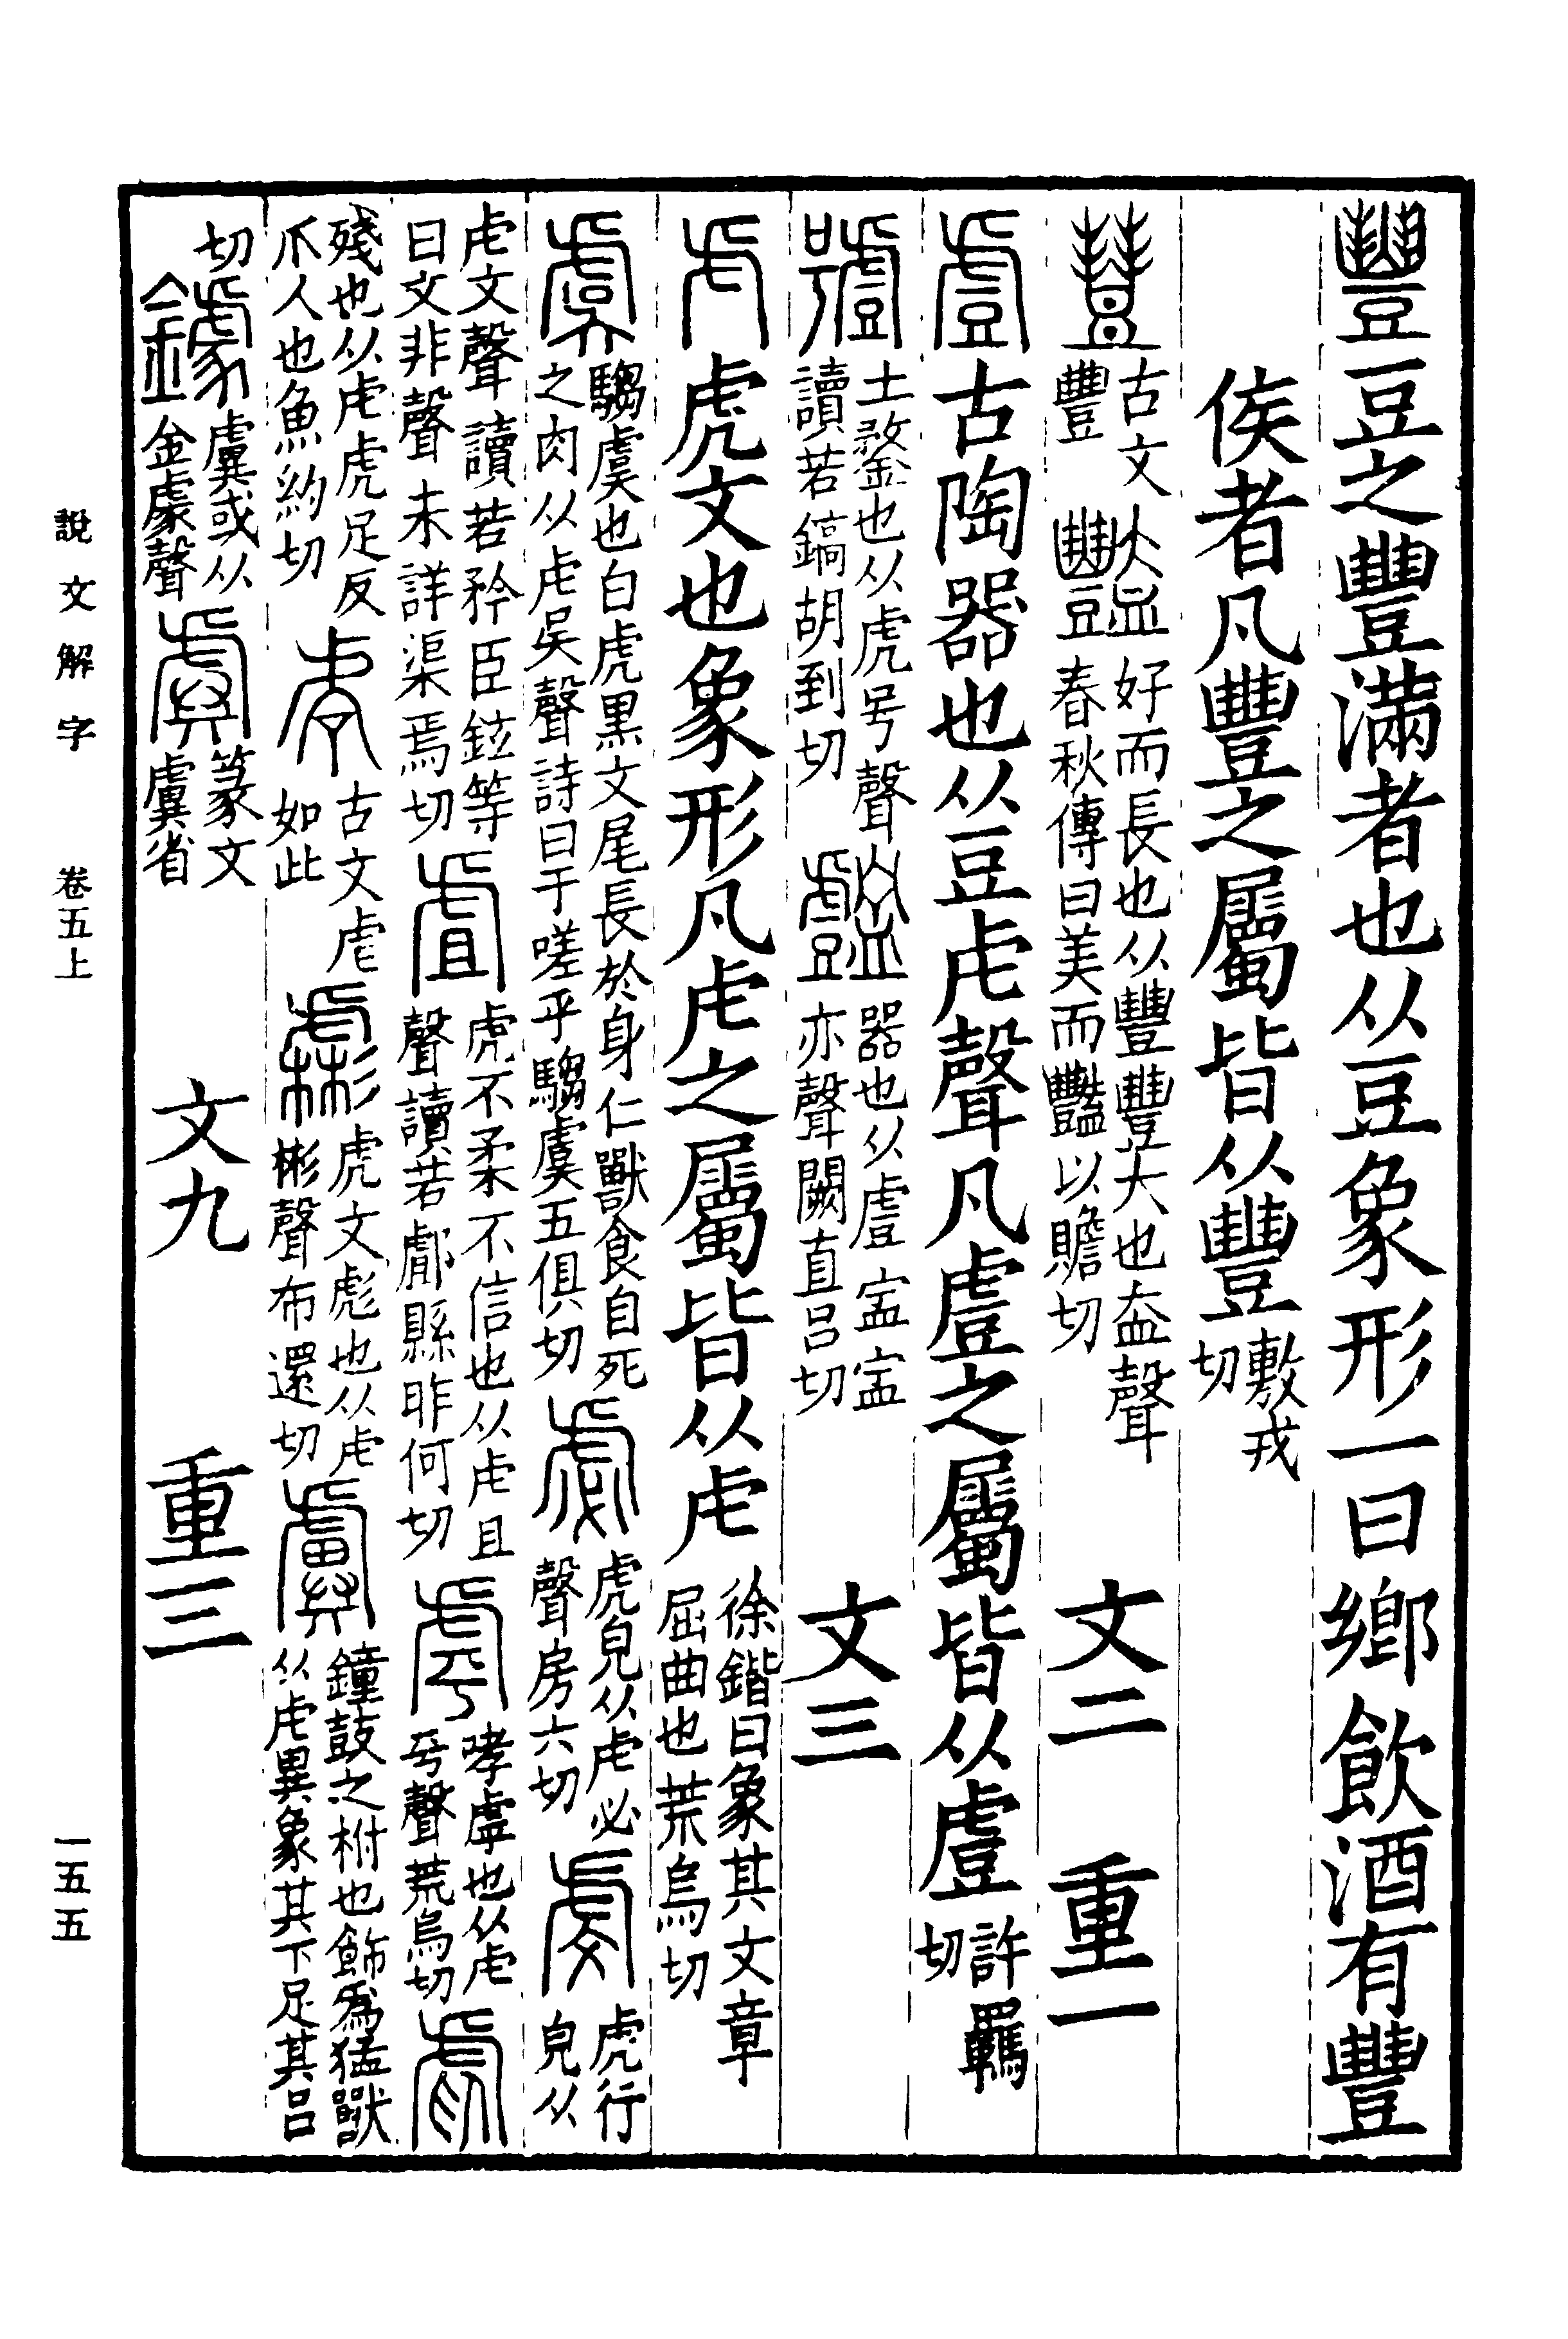 豐豆之豐滿者也从豆象形一曰鄉飲酒有豐
侯者凡豐之屬皆从豐敷戎切
𧯮古文豐豔好而長也从豐豐大也盇聲春秋傳曰美而豔以贍切 文二 重一
䖒古陶器也从豆虍聲凡䖒之屬皆从䖒許羈切
號土鍪也从虎号聲讀若鎬胡到切 器也从䖒𡧛𡧛亦聲闕直呂切 文三
虍虎文也象形凡虍之屬皆从虍徐鍇曰象其文章屈曲也荒烏切
虞騶虞也白虎黑文尾長於身仁獸食自死之肉从虍吳聲詩曰于嗟乎騶虞五俱切虙虎皃从虍必聲房六切虔虎行皃从
虍文聲讀若矜臣鉉等曰文非聲未詳渠焉切䖕虎不柔不信也从虍且聲讀若䣜縣昨何切虖哮虖也从虍乎聲荒烏切虐
殘也从虍虎足反爪人也魚約切𧆩古文虐如此虨虎文彪也从虍彬聲布還切虡鐘鼓之柎也飾爲猛獸从虍異象其下足其呂
切鐻虡或从金豦聲虡篆文虡省 文九 重三
說文解字 卷五上 一五五